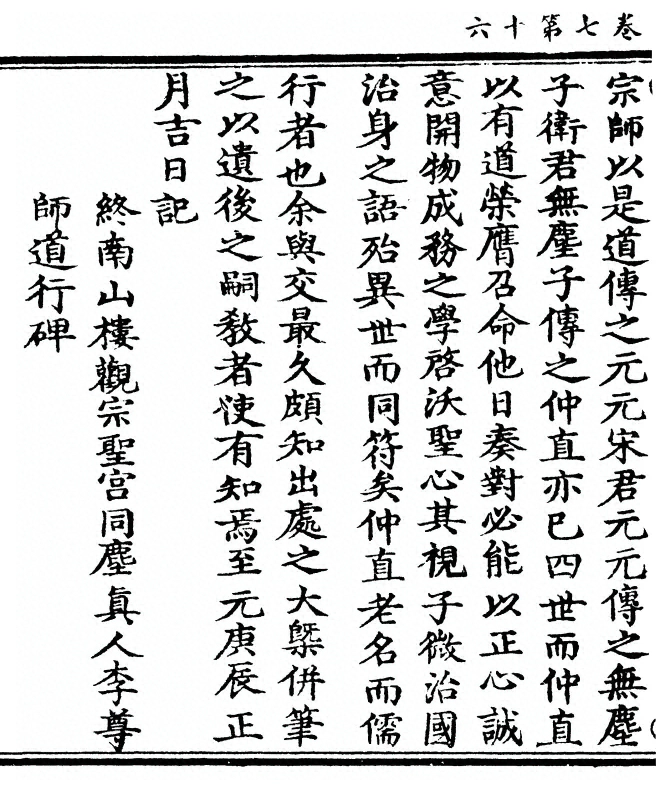 六十第七卷
宗師以是道傳之元元宋君元元傳之無塵
子衛君無塵子傳之仲直亦已四世而仲直
以有道榮膺召命他日奏對必能以正心誠
意開物成務之學啓沃聖心其視子微治國
治身之語殆異世而同符矣仲直老名而儒
行者也余與交最久頗知出處之大槩併筆
之以遺後之嗣教者使有知焉至元庚辰正
月吉日記
終南山樓觀宗聖宮同塵真人李尊
師道行碑